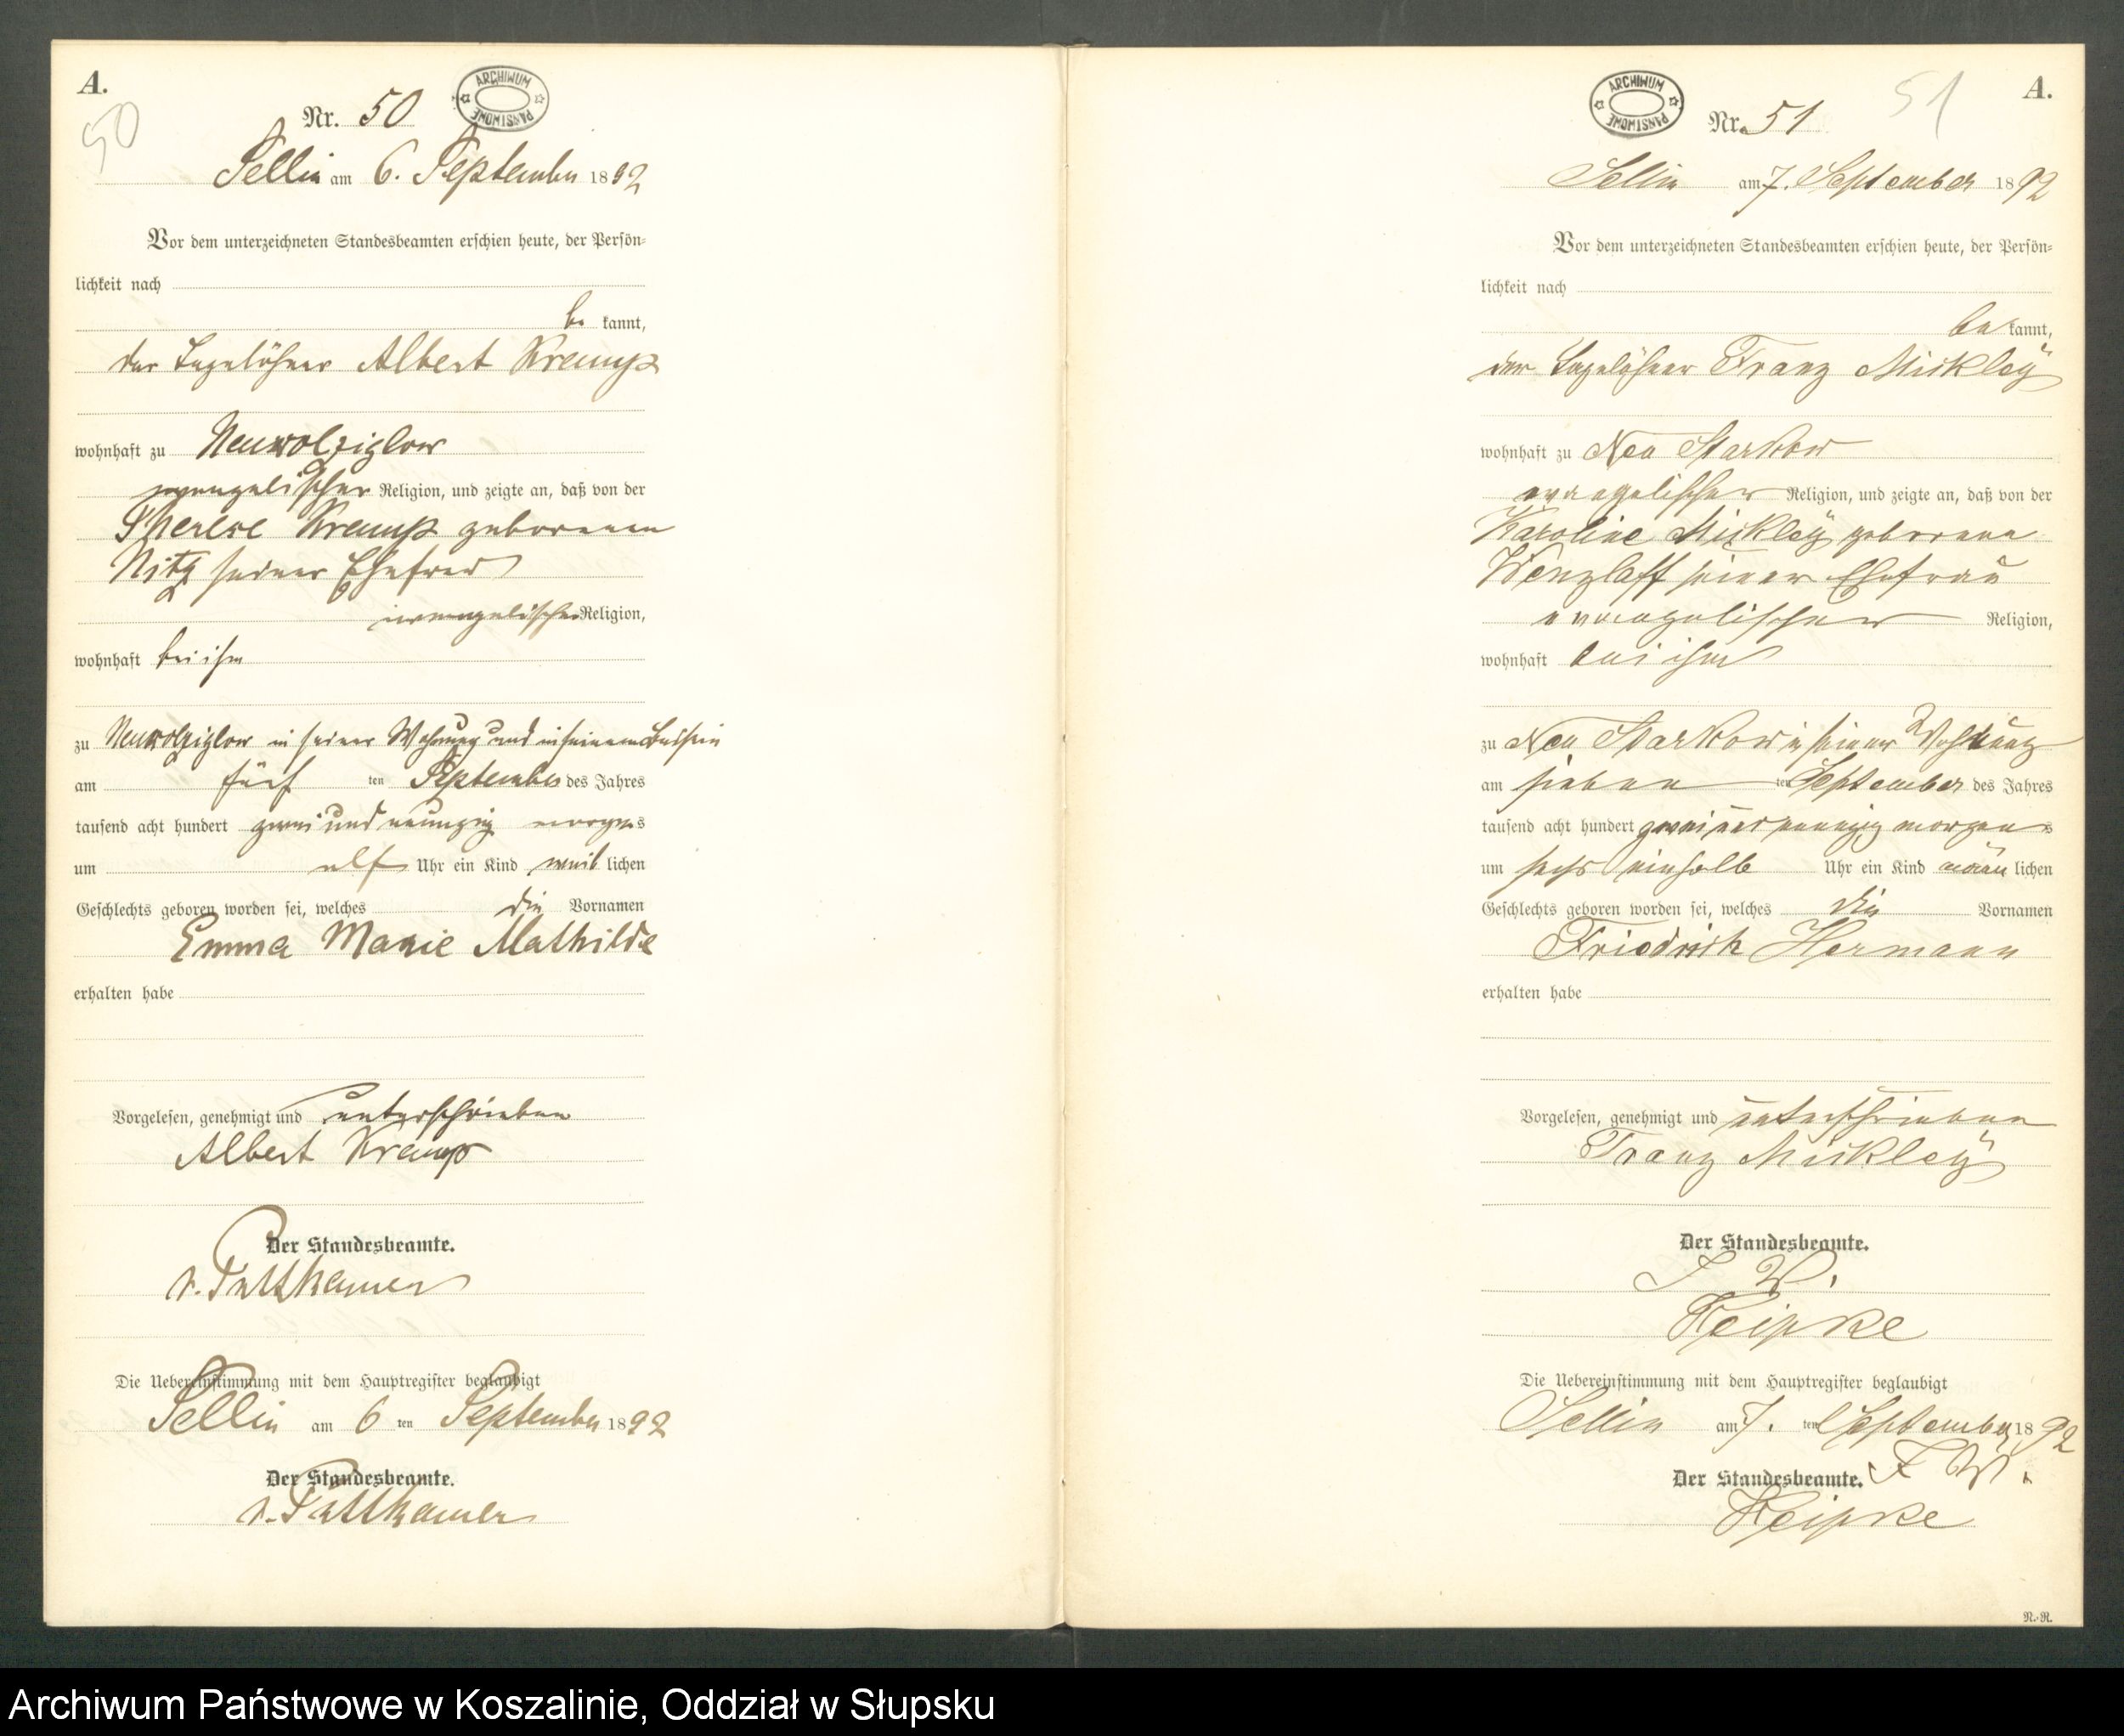 A.
50
Nr. 50
ARCHIWUM PAŃSTWOWE
Sellin am 6. September 1892
Vor dem unterzeichneten Standesbeamten erschien heute, der Persön-
lichkeit nach
be kannt,
der Tagelöhner Albert Kramp
wohnhaft zu Neuwolziglow
evangelischer Religion, und zeigte an, daß von der
Therese Kramp geborenen
Nitz seiner Ehefrau
evangelischer Religion,
wohnhaft bei ihm
zu Neuwolziglow in seiner Wohnung und in seinem Beisein
am fünf ten September des Jahres
tausend acht hundert zwei und neunzig morgens
um elf Uhr ein Kind weib lichen
Geschlechts geboren worden sei, welches die Vornamen
Emma Marie Mathilde
erhalten habe
Vorgelesen, genehmigt und unterschrieben
Albert Kramp
Der Standesbeamte.
v. Puttkamer
Die Uebereinstimmung mit dem Hauptregister beglaubigt
Sellin am 6 ten September 1892
Der Standesbeamte.
v. Puttkamer
A.
51
ARCHIWUM PAŃSTWOWE
Nr. 51
Sellin am 7. September 1892
Vor dem unterzeichneten Standesbeamten erschien heute, der Persön-
lichkeit nach
be kannt,
der Tagelöhner Franz Mickley
wohnhaft zu Neu Starkow
evangelischer Religion, und zeigte an, daß von der
Karoline Mickley geborene
Wenzlaff seiner Ehefrau
evangelischer Religion,
wohnhaft bei ihm
zu Neu Starkow in seiner Wohnung
am sieben ten September des Jahres
tausend acht hundert zwei und neunzig morgens
um sechs einhalb Uhr ein Kind männ lichen
Geschlechts geboren worden sei, welches die Vornamen
Friedrich Hermann
erhalten habe
Vorgelesen, genehmigt und unterschrieben
Franz Mickley
Der Standesbeamte.
I. V.
Keipke
Die Uebereinstimmung mit dem Hauptregister beglaubigt
Sellin am 7. ten September 1892
Der Standesbeamte. I. V.
Keipke
N.-R.
Archiwum Państwowe w Koszalinie, Oddział w Słupsku